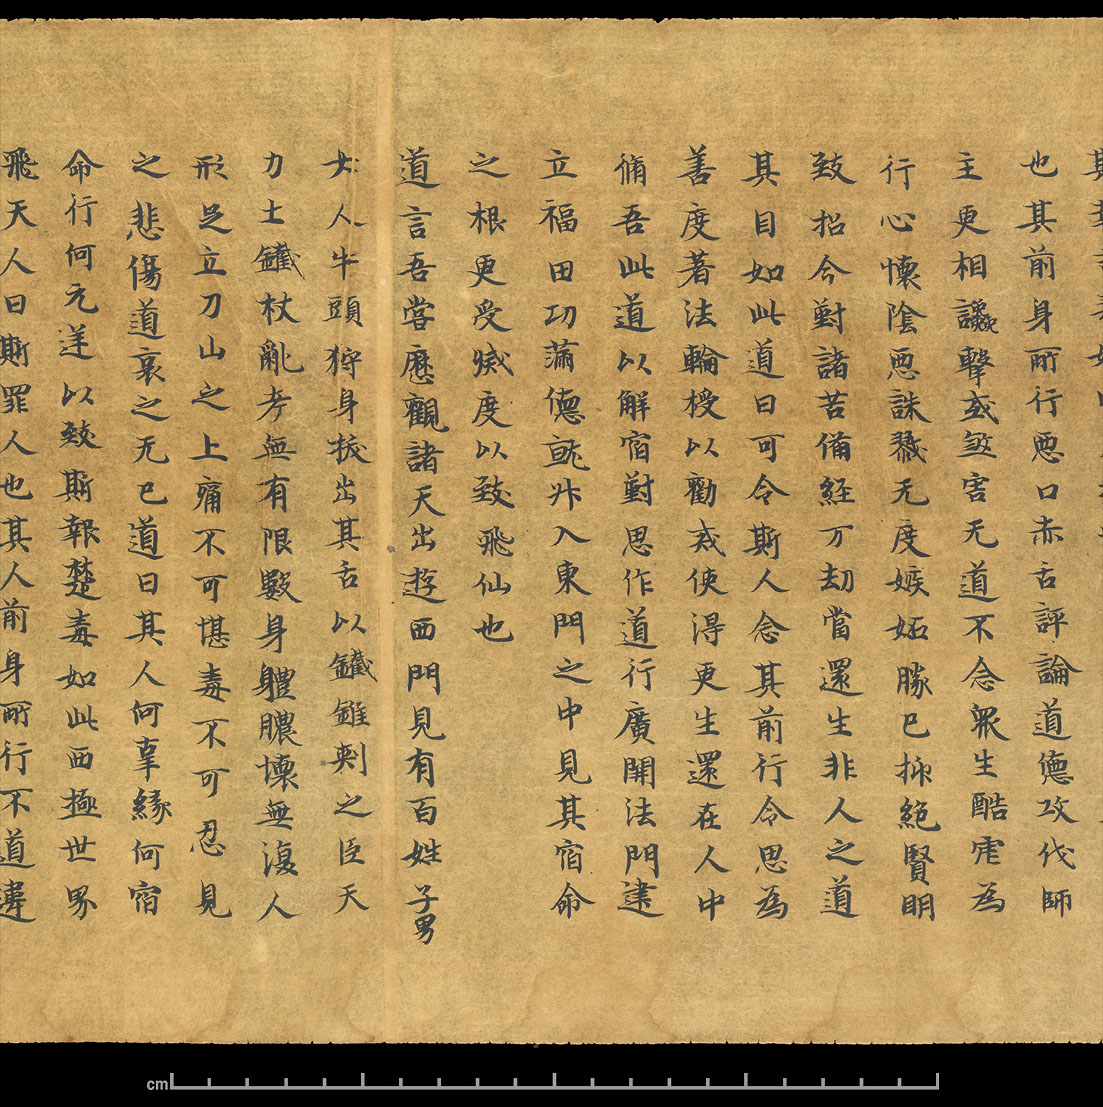 也其前身所行惡口赤舌評論道德攻伐師
主更相讒擊或煞害无道不念衆生酷虐為
行心懷陰惡誅戮无度嫉妬勝己抑絕賢明
致招今對諸苦備經万劫當還生非人之道
其目如此道曰可令斯人念其前行令思為
善度著法輪授以勸戒使得更生還在人中
脩吾此道以解宿對思作道行廣開法門建
立福田功滿德就廾入東門之中見其宿命
之根更受滅度以致飛仙也
道言吾嘗歷觀諸天出遊西門見有百姓子男
女人牛頭狩身拔出其舌以鐵錐刺之臣天
力士鐵杖亂考無有限數身體膿壞無復人
形足立刀山之上痛不可堪毒不可忍見
之悲傷道哀之无已道曰其人何辜緣何宿
命行何元逆以致斯報楚毒如此西極世界
飛天人曰斯罪人也其人前身所行不道遘